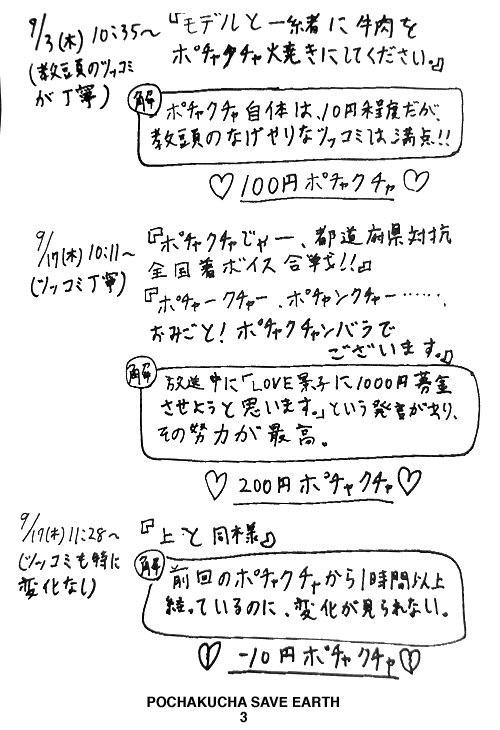 9/3(木) 10:35~
(教頭のツッコミ
が丁寧)
『モデルと一緒に牛肉を
ポチャクチャ火焼きにしてください。』
解
ポチャクチャ自体は、10円程度だが、
教頭のなげやりなツッコミは満点!!
♡100円ポチャクチャ♡
9/17(木) 10:11~
(ツッコミ丁寧)
『ポチャクチャじゃー、都道府県対抗
全国着ボイス合戦!!』
『ポチャークチャー、ポチャンクチャー……、
おみごと!ポチャクチャンバラで
ございます。』
解
放送中に「LOVE景子に1000円募金
させようと思います。」という発言があり、
その努力が最高。
♡200円ポチャクチャ♡
9/17(木)11:28~
(ツッコミも特に
変化なし)
『上と同様』
解
前回のポチャクチャから1時間以上
経っているのに、変化が見られない。
-10円ポチャクチャ
POCHAKUCHA SAVE EARTH
3